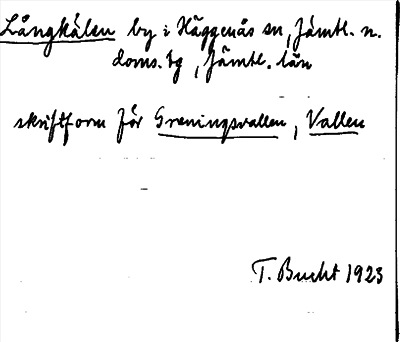 Långkälen by i Häggenås sn, Jämtl. n.
doms. tg, Jämtl. län
skriftform för Greningsvallen, Vallen
T. Bucht 1923